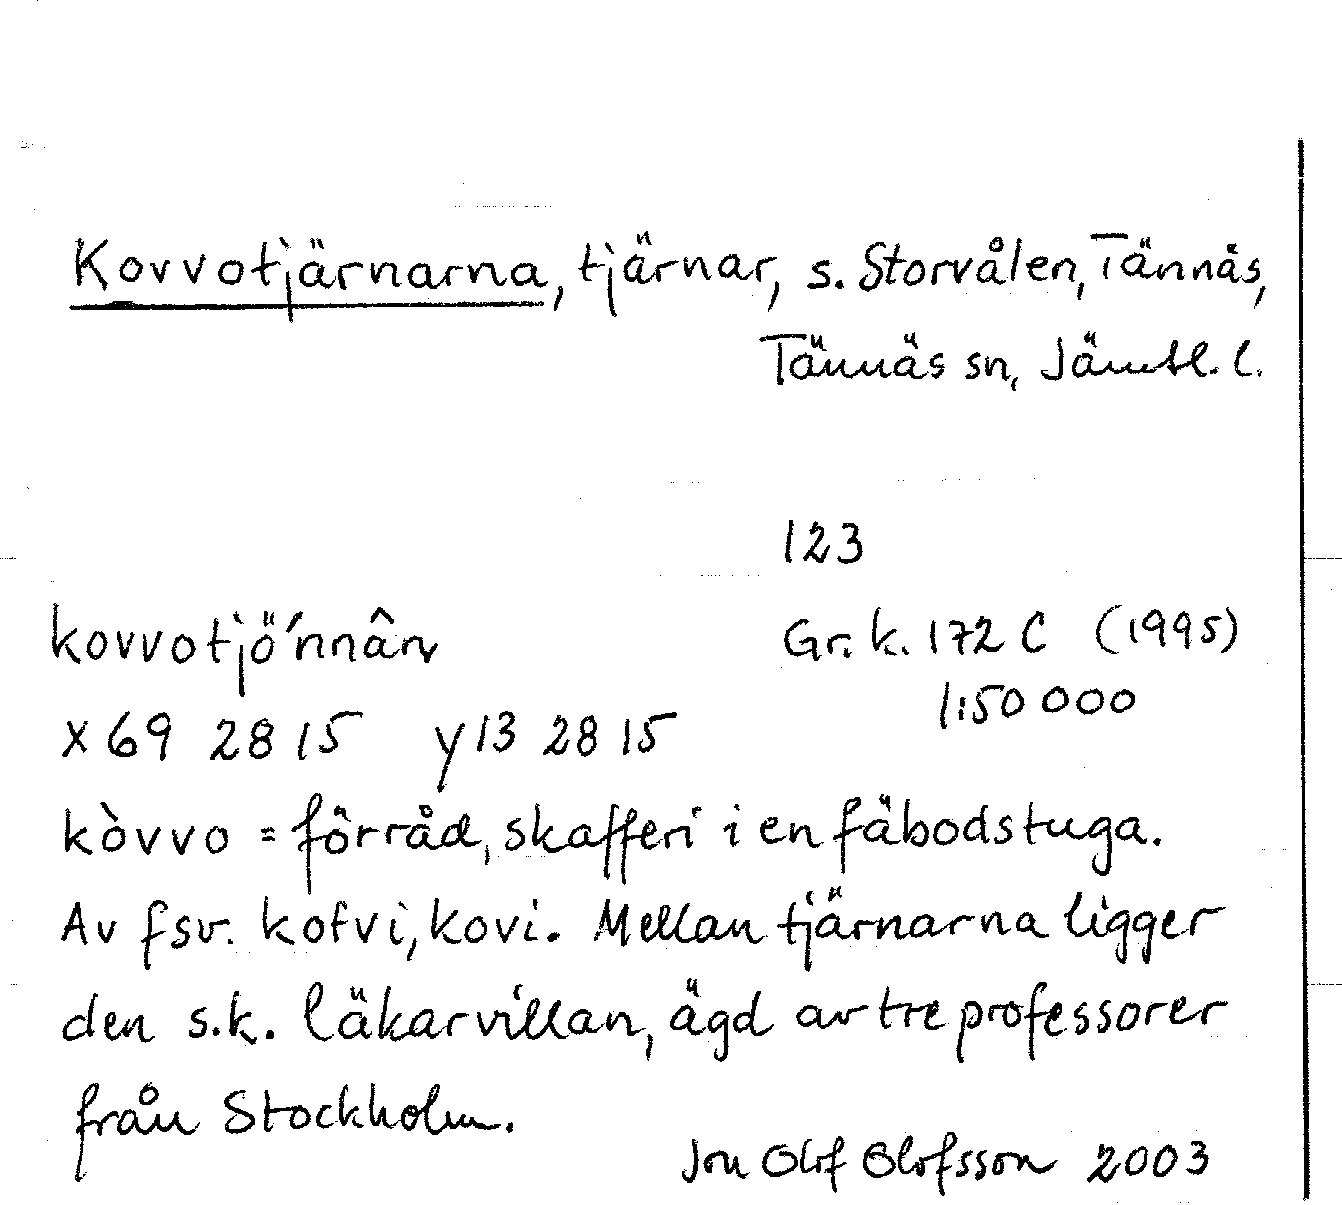 Kovvotjärnarna, tjärnar, s. Storvålen, Tännäs,
Tännäs sn, Jämtl. l.
123
kovvotjö́nnân Gr. k. 172 C (1995)
1:50 000
x 69 28 15 y 13 28 15
kòvvo = förråd, skafferi i en fäbodstuga.
Av fsv. kofvi, kovi. Mellan tjärnarna ligger
den s.k. läkarvillan, ägd av tre professorer
från Stockholm.
Jon Olof Olofsson 2003